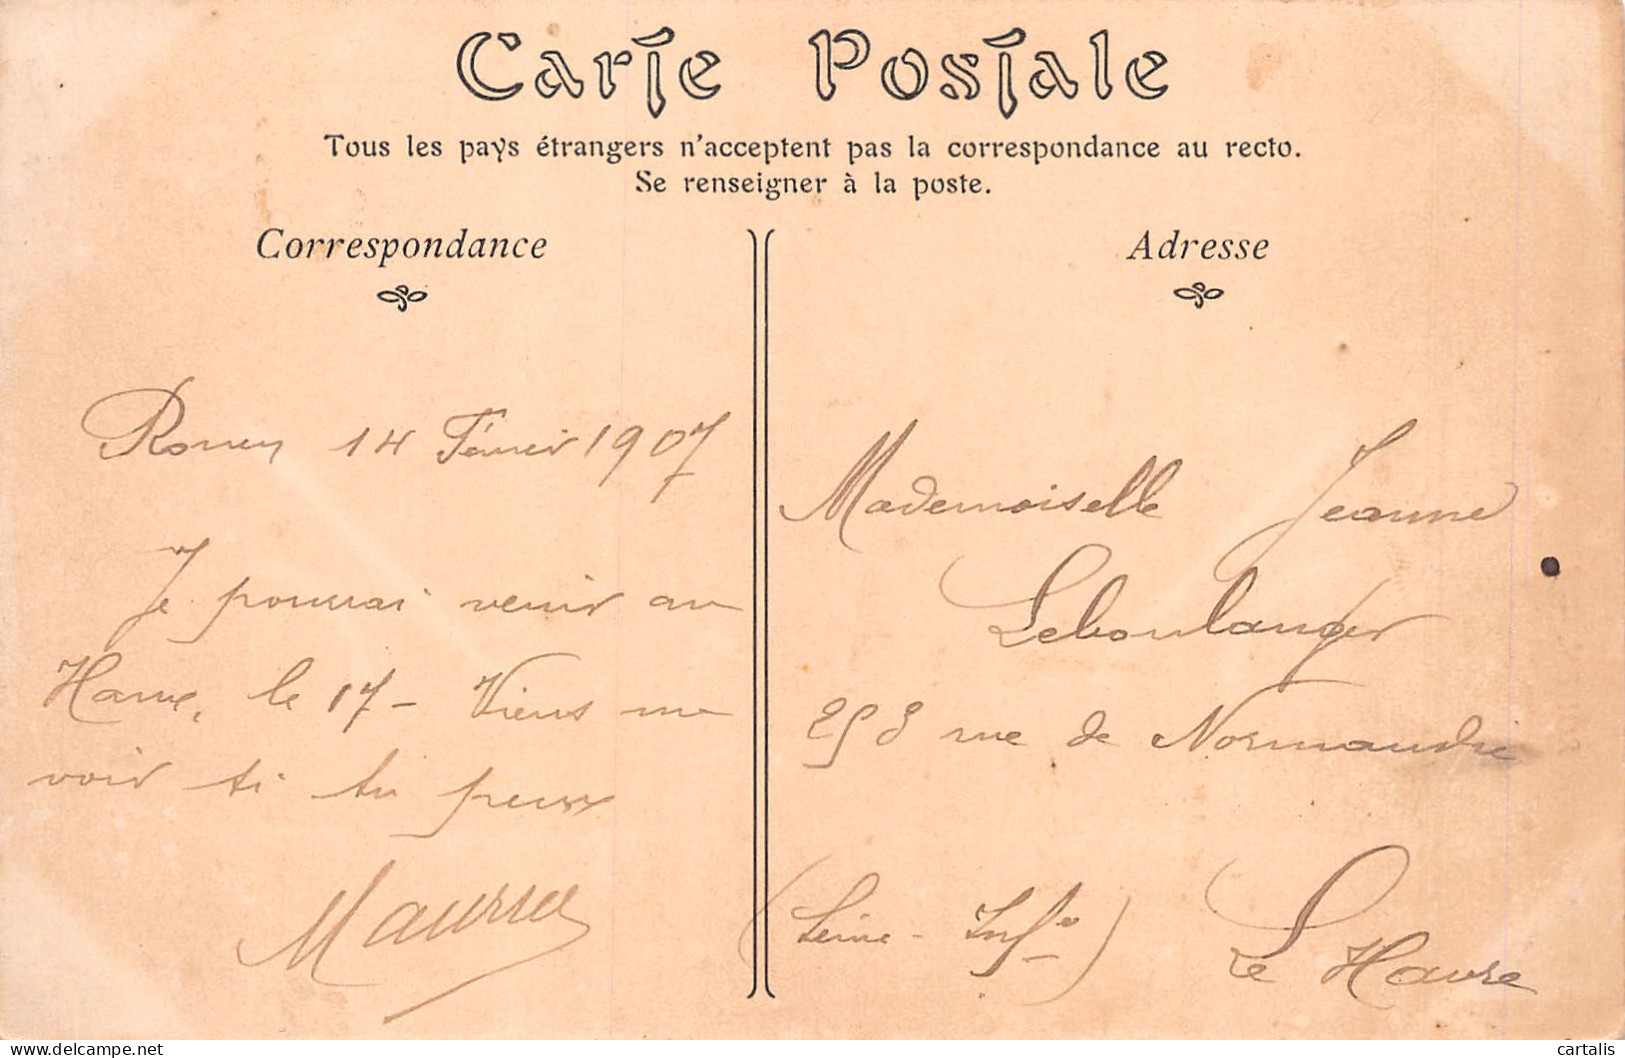 Carte Postale
Tous les pays étrangers n'acceptent pas la correspondance au recto.
Se renseigner à la poste.
Correspondance
Adresse
Rouen 14 Février 1907
Je pourrai venir au
Havre, le 17 - Viens me
voir si tu peux
Maurice
Mademoiselle Jeanne
Leboulanger
253 rue de Normandie
(Seine-Infre)
Le Havre
cartalis
delcampe.net